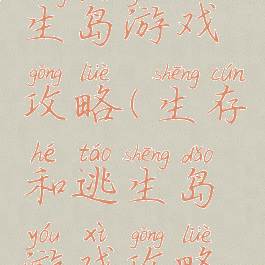 生岛游戏
gōng lüè shēng cún
攻略(生存
hé táo shēng dǎo
和逃生岛
yóu xì gōng lüè
游戏攻略